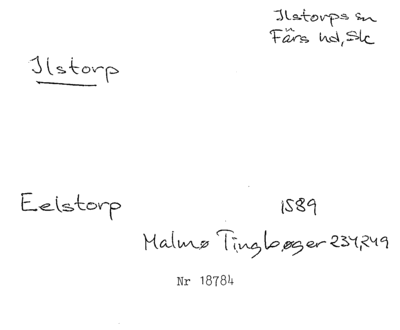 Ilstorps sn
Färs hd, Sk
Ilstorp
Eelstorp 1589
Malmø Tingbøger 237,249
Nr 18784